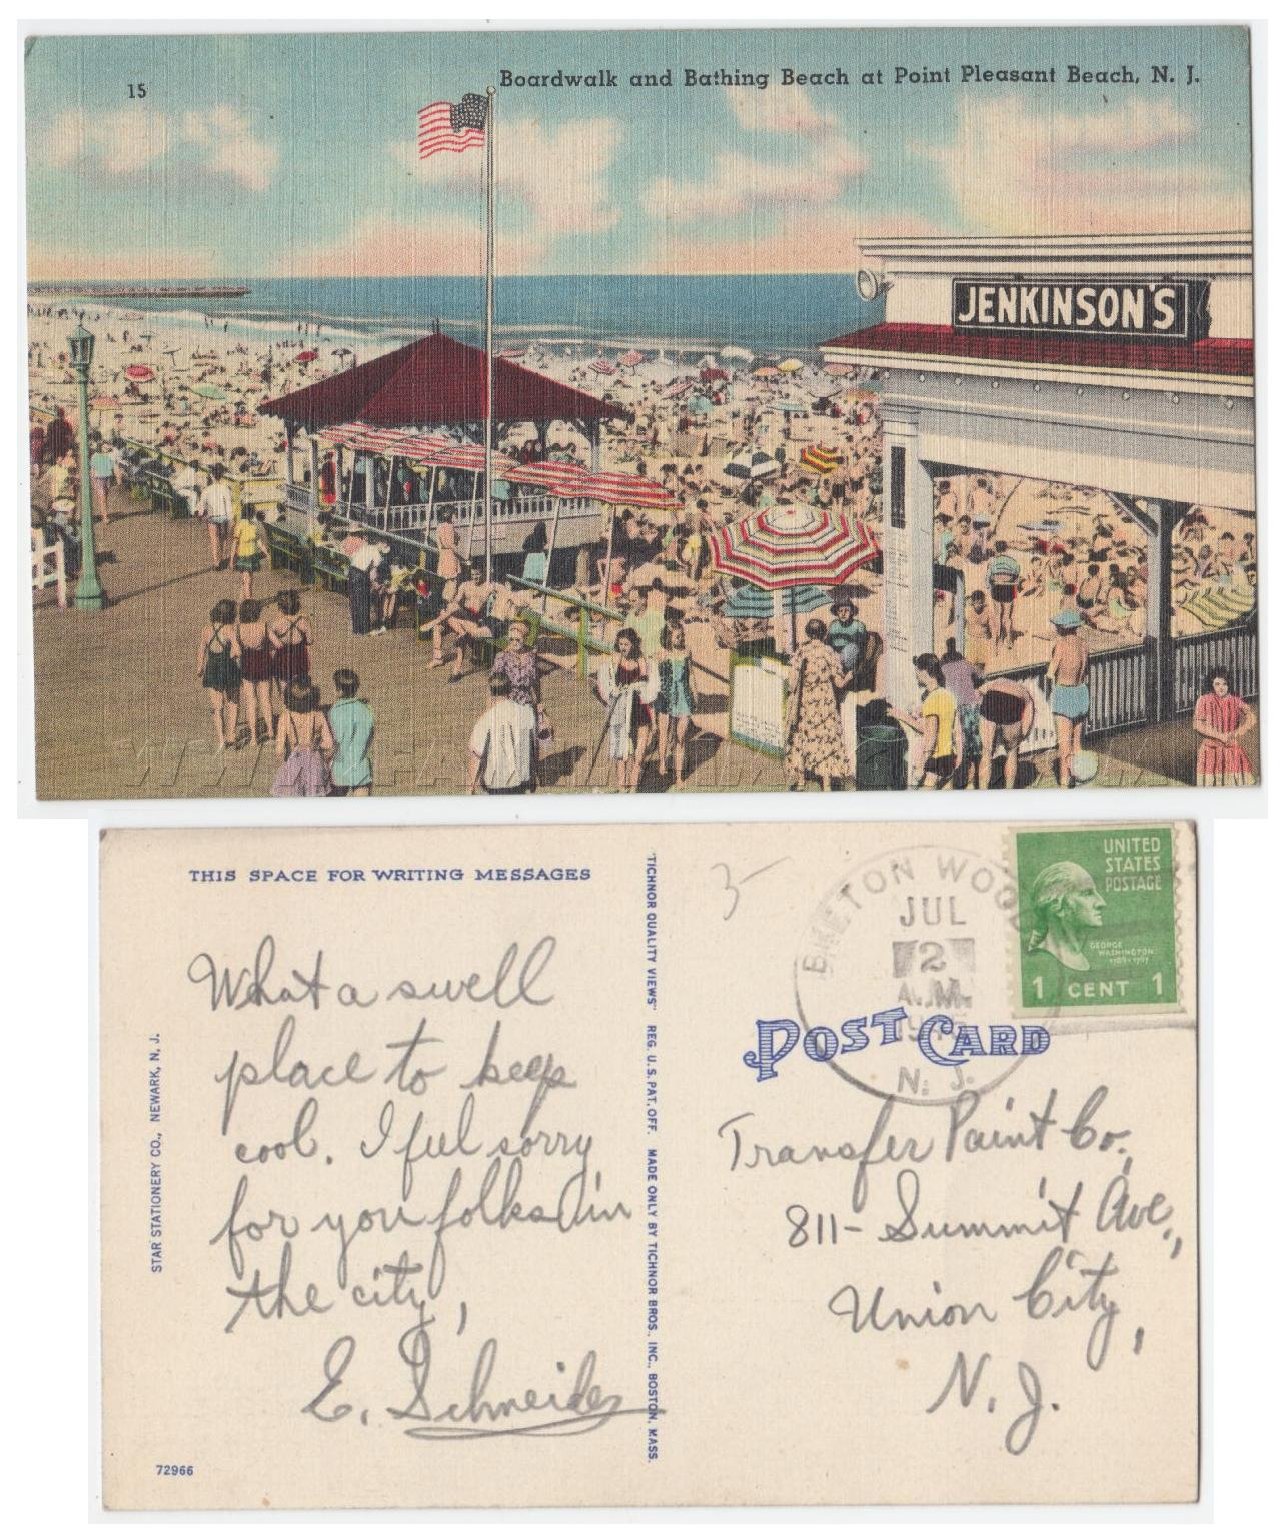 15
Boardwalk and Bathing Beach at Point Pleasant Beach, N. J.
JENKINSON'S
THIS SPACE FOR WRITING MESSAGES
What a swell
place to keep
cool. I feel sorry
for you folks in
the city,
E. Schneider
STAR STATIONERY CO., NEWARK, N. J.
72966
"TICHNOR QUALITY VIEWS" REG. U. S. PAT. OFF. MADE ONLY BY TICHNOR BROS., INC., BOSTON, MASS.
3-
BRETON WOODS
JUL
2
A.M.
N. J.
UNITED
STATES
POSTAGE
GEORGE
WASHINGTON
1789-1797
1 CENT 1
POST CARD
Transfer Paint Co.,
811- Summit Ave.,
Union City,
N. J.